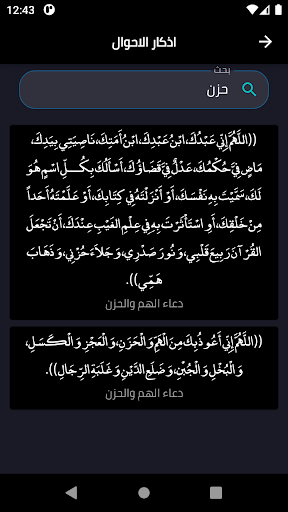 12:43
اذكار الاحوال
بحث
حزن
((اللَّهُمَّ إِنِّي عَبْدُكَ، ابْنُ عَبْدِكَ، ابْنُ أَمَتِكَ، نَاصِيَتِي بِيَدِكَ،
مَاضٍ فِيَّ حُكْمُكَ، عَدْلٌ فِيَّ قَضَاؤُكَ، أَسْأَلُكَ بِكُلِّ اسْمٍ هُوَ
لَكَ، سَمَّيْتَ بِهِ نَفْسَكَ، أَوْ أَنْزَلْتَهُ فِي كِتَابِكَ، أَوْ عَلَّمْتَهُ أَحَداً
مِنْ خَلْقِكَ، أَوِ اسْتَأْثَرْتَ بِهِ فِي عِلْمِ الغَيْبِ عِنْدَكَ، أَنْ تَجْعَلَ
القُرْآنَ رَبِيعَ قَلْبِي، وَنُورَ صَدْرِي، وَجَلاَءَ حُزْنِي، وَذَهَابَ
هَمِّي)).
دعاء الهم والحزن
((اللَّهُمَّ إِنِّي أَعُوذُ بِكَ مِنَ الْهَمِّ وَالْحَزَنِ، وَالْعَجْزِ وَالْكَسَلِ،
وَالْبُخْلِ وَالْجُبْنِ، وَضَلَعِ الدَّيْنِ وَغَلَبَةِ الرِّجَالِ)).
دعاء الهم والحزن